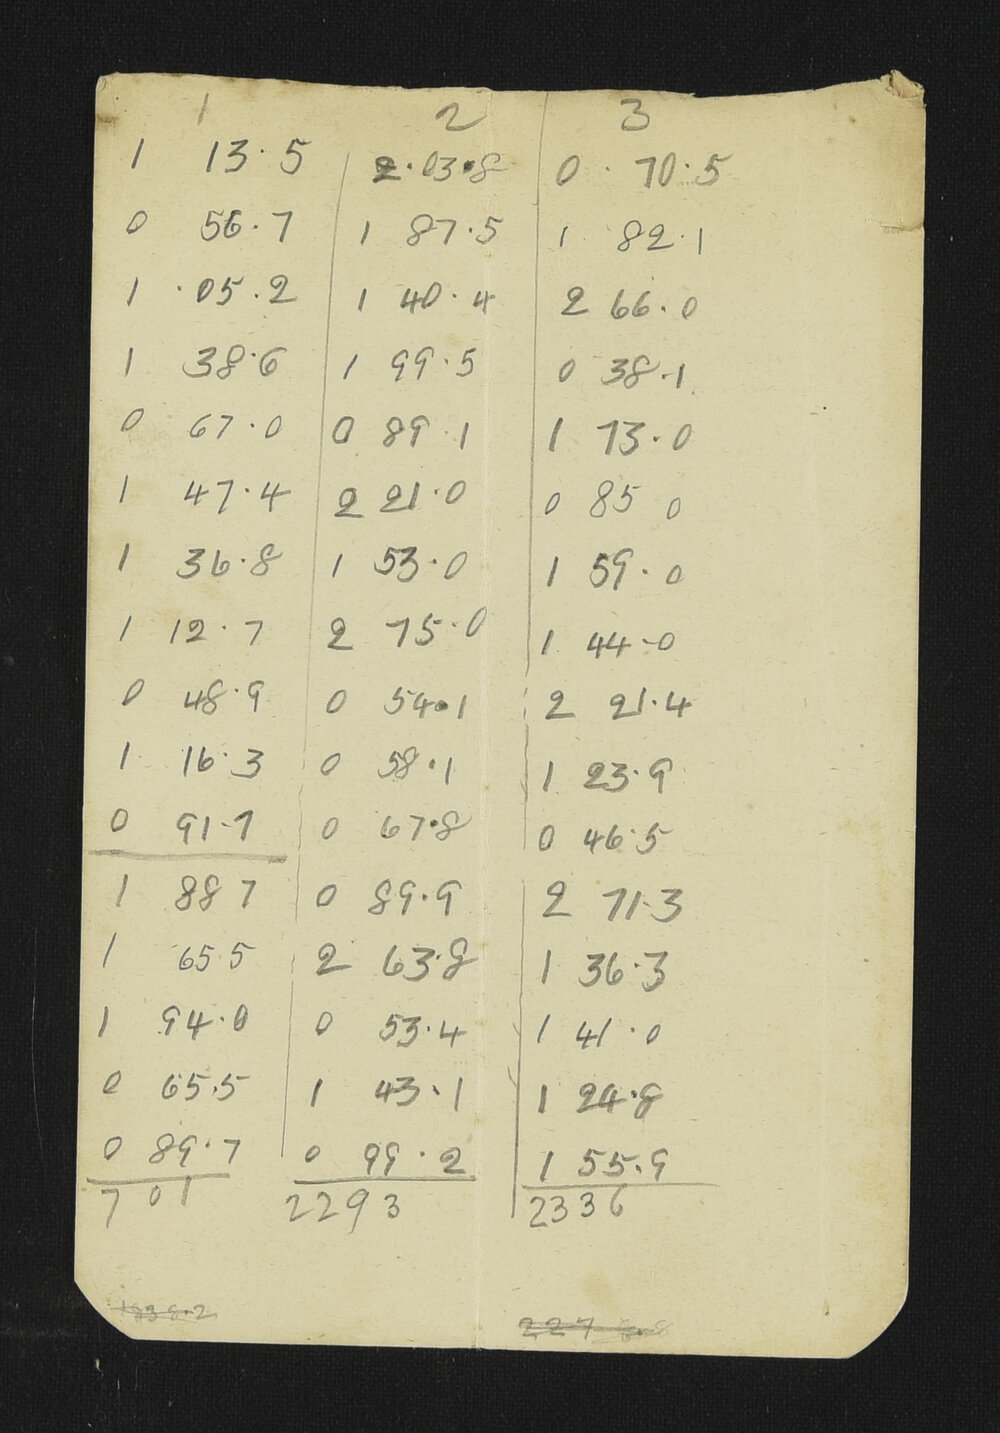 1 2 3
1 13.5 2.03.8 0.70.5
0 56.7 1 87.5 1 82.1
1 .05.2 1 40.4 2 66.0
1 38.6 1 99.5 0 38.1
0 67.0 0 89 1 1 73.0
1 47.4 2 21.0 0 85 0
1 36.8 1 53.0 1 59.0
1 12.7 2 75.0 1 44-0
0 48.9 0 54.1 2 21.4
1 16.3 0 58.1 1 23.9
0 91.7 0 67.8 0 46.5
1 88 7 0 89.9 2 71.3
1 65.5 2 63.8 1 36.3
1 94.0 0 53.4 1 41.0
0 65.5 1 43.1 1 24.8
0 89.7 0 99.2 1 55.9
7 0 1 2293 2336